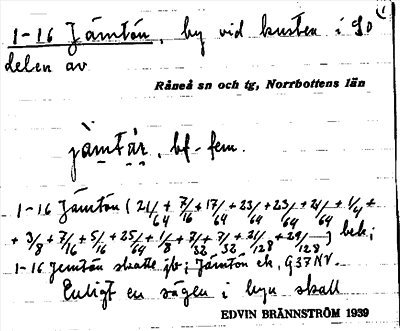 1-16 Jämtön, by vid kusten i SO (1
delen av
Råneå sn och tg, Norrbottens län
jämtär, bf. fem.
1-16 Jämtön (21/64 + 7/16 + 17/64 + 23/64 + 23/64 + 21/64 + 1/4 +
+ 3/8 + 7/16 + 5/16 + 25/64 + 1/8 + 7/32 + 7/32 + 21/128 + 29/128) bek;
1-16 Jemtön skatte jb; Jämtön ek, G37NV.
Enligt en sägen i byn skall
EDVIN BRÄNNSTRÖM 1939